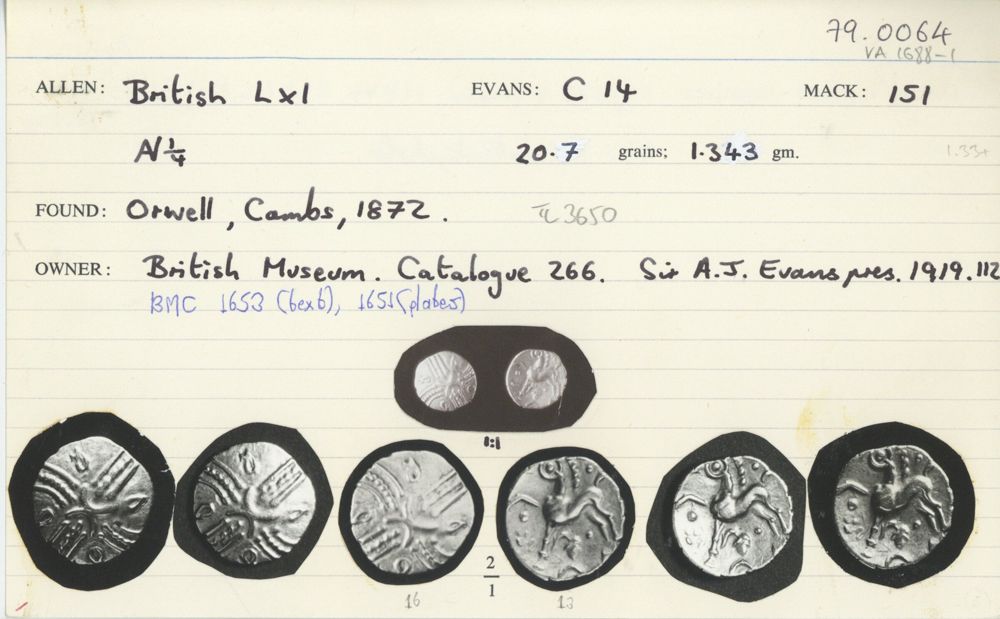 79.0064
VA 1688-1
ALLEN: British LX1 EVANS: C 14 MACK: 151
N 1/4 20.7 grains; 1.343 gm. 1.33+
FOUND: Orwell, Cambs, 1872. TL 3650
OWNER: British Museum. Catalogue 266. Sir A.J. Evans pres. 1919.112
BMC 1653 (text), 1651 (plates)
1:1
2/1
16 13